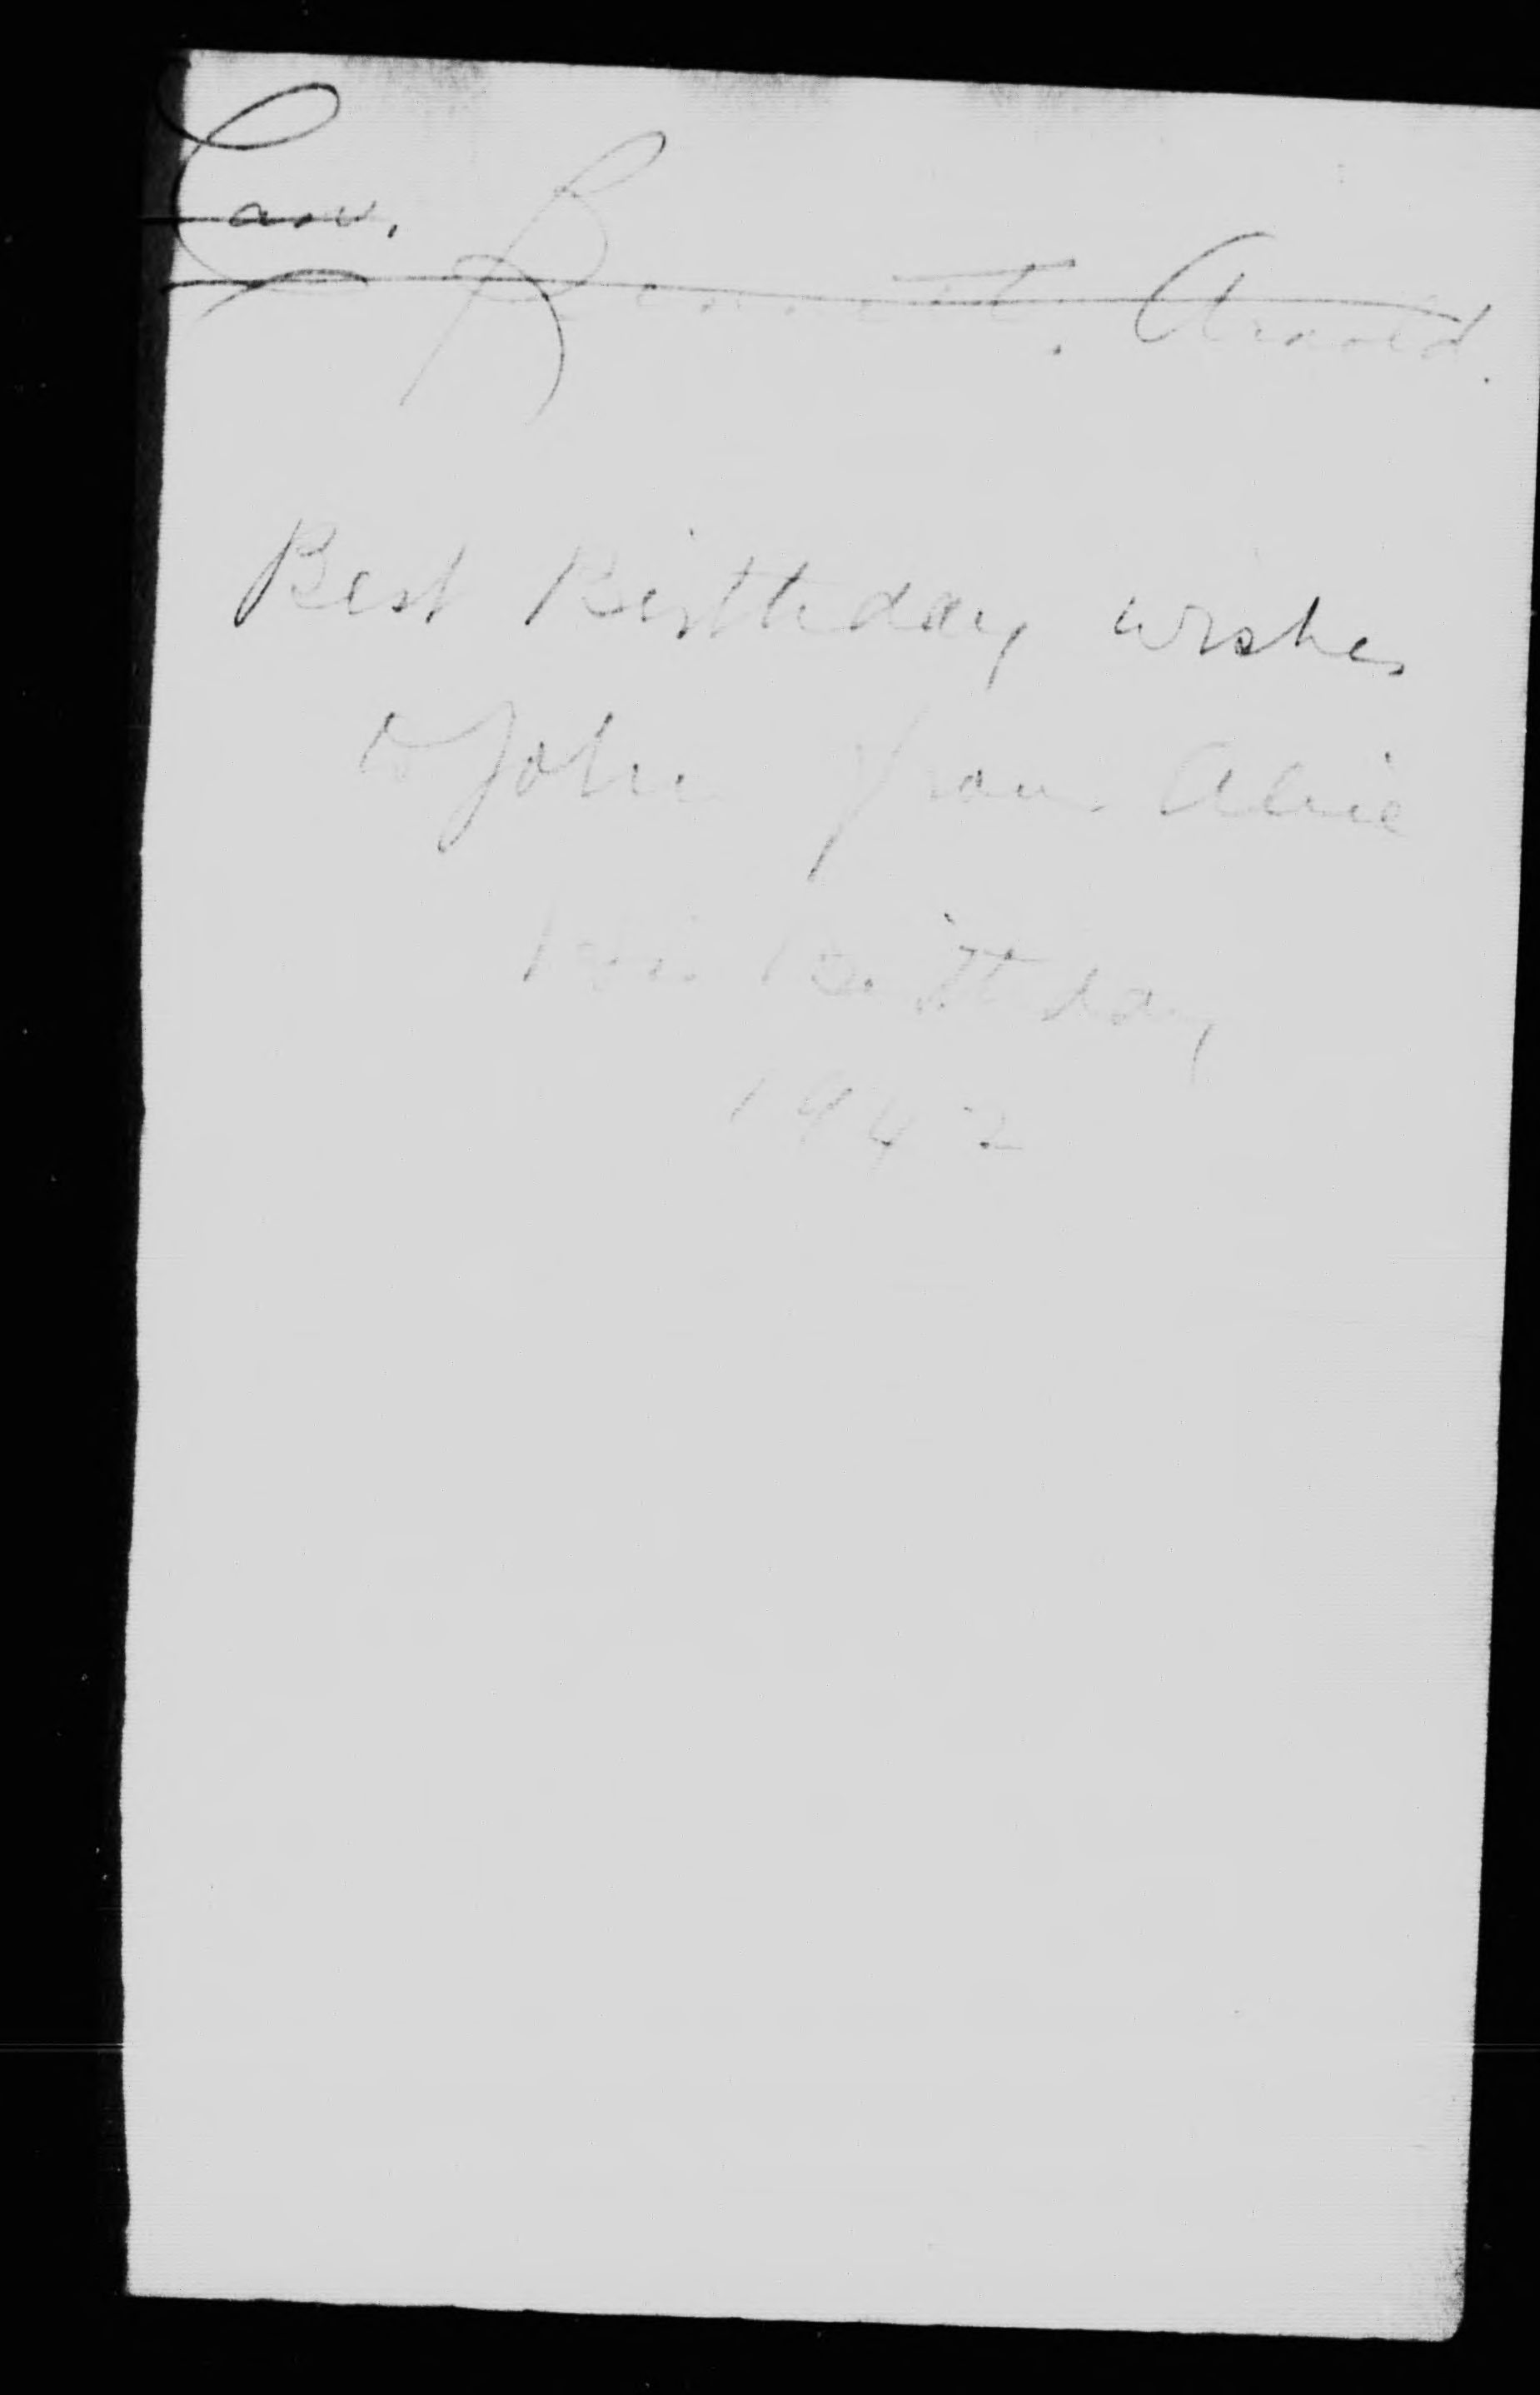 Bennett. Arnold.
Best Birthday wishes
to John from Alice
Birthday
1942